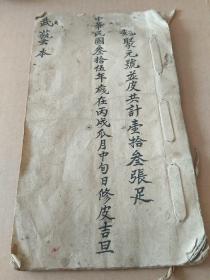 聚元號並皮共計壹拾叁張足
中華民國叁拾伍年歲在丙戌瓜月中旬日修皮吉旦
武
本